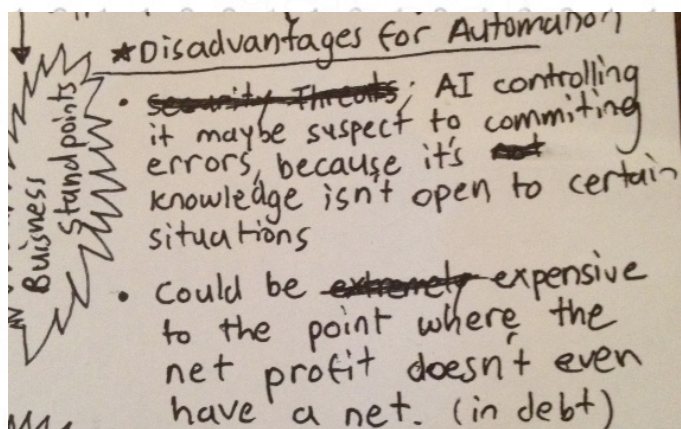 *Disadvantages for Automation
Buisness
Standpoints
• security Threats; AI controlling
it maybe suspect to commiting
errors, because it's not
knowledge isn't open to certain
situations
• Could be extremely expensive
to the point where the
net profit doesn't even
have a net. (in debt)